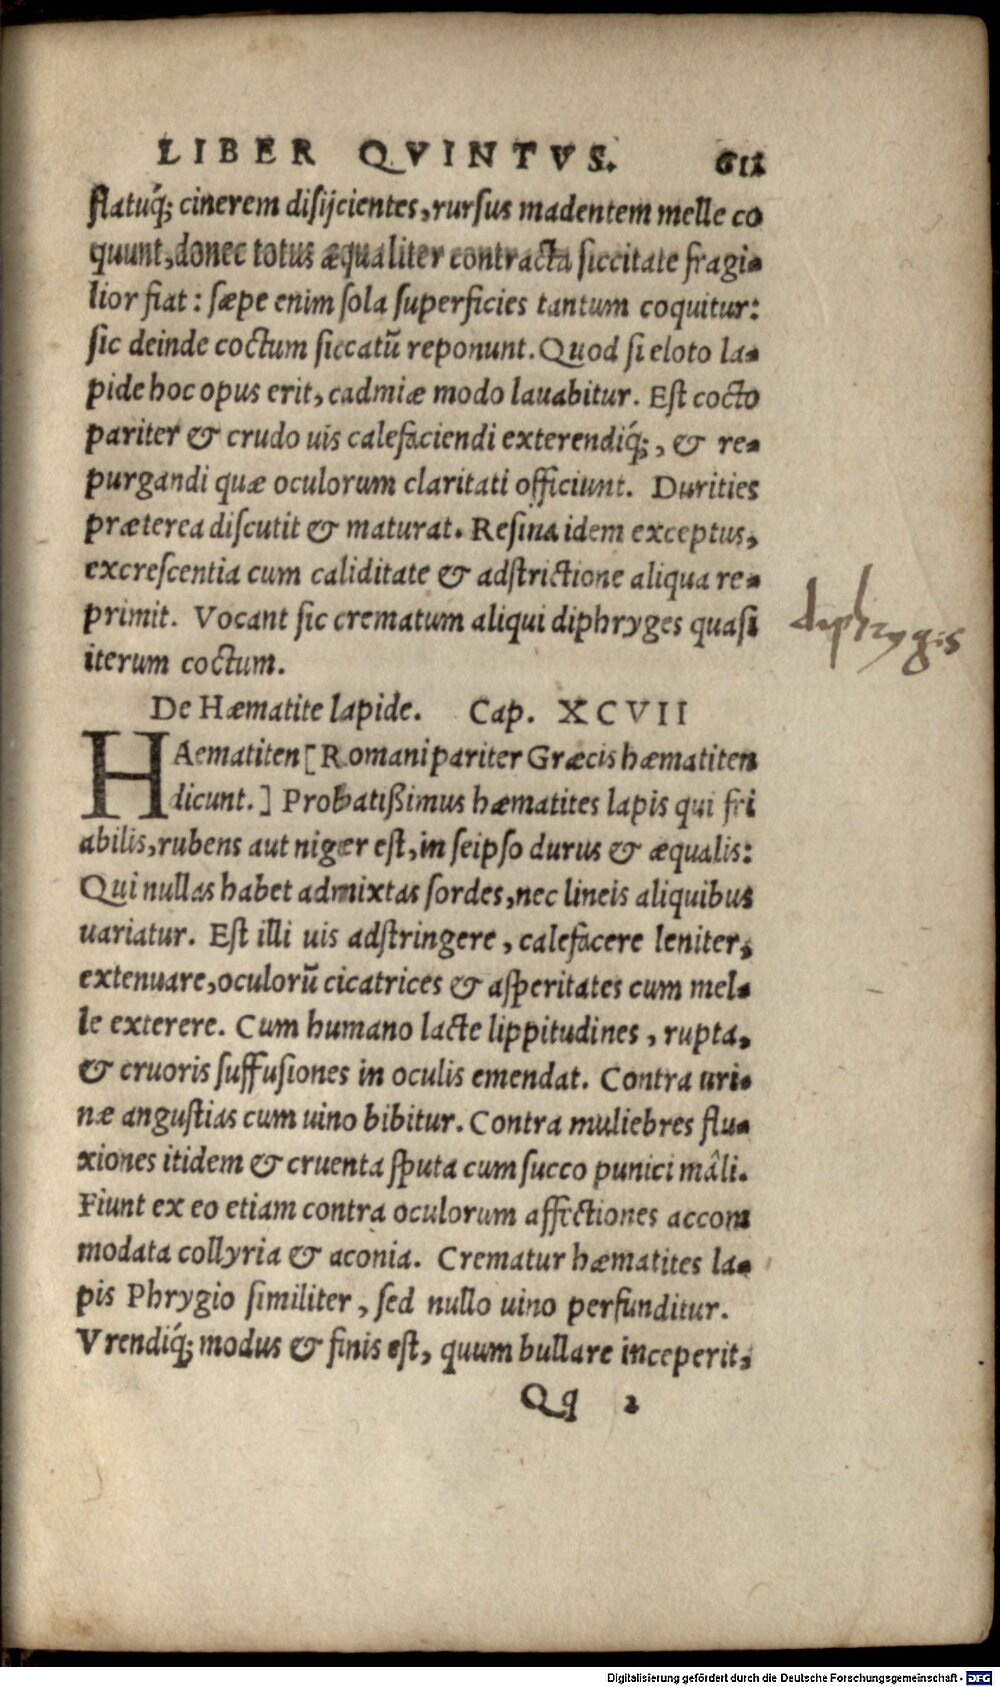 LIBER QVINTVS. 611
flatuq́; cinerem disijcientes, rursus madentem melle co
quunt, donec totus æqualiter contracta siccitate fragi-
lior fiat: sæpe enim sola superficies tantum coquitur:
sic deinde coctum siccatũ reponunt. Quod si eloto la-
pide hoc opus erit, cadmiæ modo lauabitur. Est cocto
pariter & crudo uis calefaciendi exterendiq́;, & re-
purgandi quæ oculorum claritati officiunt. Durities
præterea discutit & maturat. Resina idem exceptus,
excrescentia cum caliditate & adstrictione aliqua re-
primit. Vocant sic crematum aliqui diphryges quasi
iterum coctum.
diphrygis
De Hæmatite lapide. Cap. XCVII
HAematiten [Romani pariter Græcis hæmatiten
dicunt.] Probatißimus hæmatites lapis qui fri
abilis, rubens aut niger est, in seipso durus & æqualis:
Qui nullas habet admixtas sordes, nec lineis aliquibus
uariatur. Est illi uis adstringere, calefacere leniter,
extenuare, oculorũ cicatrices & asperitates cum mel-
le exterere. Cum humano lacte lippitudines, rupta,
& cruoris suffusiones in oculis emendat. Contra uri-
næ angustias cum uino bibitur. Contra muliebres flu-
xiones itidem & cruenta sputa cum succo punici mâli.
Fiunt ex eo etiam contra oculorum affectiones accom
modata collyria & aconia. Crematur hæmatites la-
pis Phrygio similiter, sed nullo uino perfunditur.
Vrendiq́; modus & finis est, quum bullare inceperit,
Qq 2
Digitalisierung gefördert durch die Deutsche Forschungsgemeinschaft - DFG